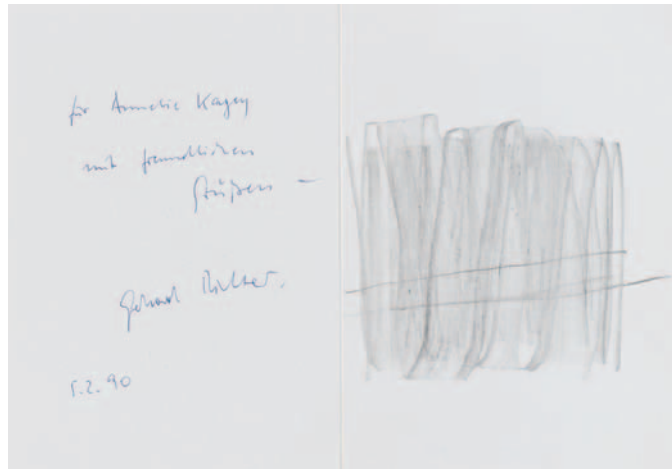 für Annelie
mit freundlichen
Grüßen –
Gerhard Richter.
5.2.90